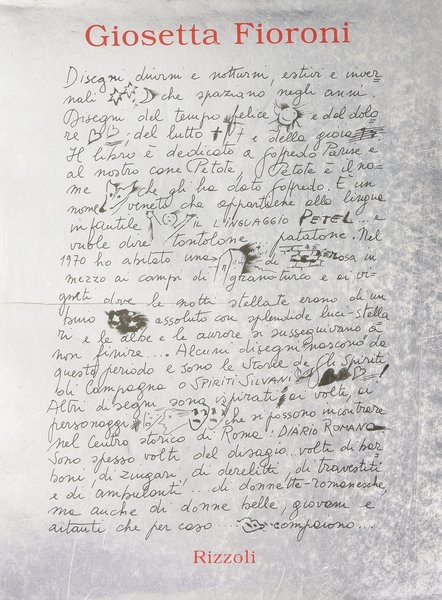 Giosetta Fioroni
Disegni, diurni e notturni, estivi e inver-
nali che spaziano negli anni.
Disegni del tempo felice e del dolo-
re, del lutto e della gioia
Il libro è dedicato a Goffredo Parise e
al nostro cane Petote, Petote è il no-
me che gli ha dato Goffredo. È un
nome veneto che appartiene alla lingua
infantile IL LINGUAGGIO PETEL... e
vuole dire tontolone patatone. Nel
1970 ho abitato una di rosa in
mezzo ai campi di granoturco e ai vi-
gneti dove le notti stellate erano di un
buio assoluto con splendide luci-stella
ri e le albe e le aurore si susseguivano a
non finire.... Alcuni disegni nascono da
questo periodo e sono le Storie degli Spiriti
di Campagna o SPIRITI SILVANI!
Altri disegni sono ispirati, a volte, ai
personaggi che si possono incontrare
nel centro storico di Roma: DIARIO ROMANO
Sono spesso volti del disagio. volti di bar
boni, di zingari, di derelitti di travestiti
e di ambulanti... di donnette-romanesche,
ma anche di donne belle, giovani e
aitanti che per caso... compaiono...
Rizzoli